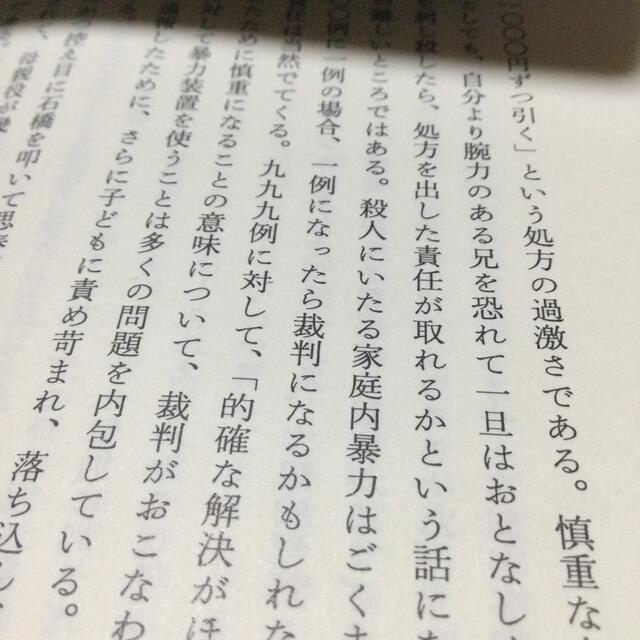 000円ずつ引く」という処方の過激さである。慎重な
しても、自分より腕力のある兄を恐れて一旦はおとなし
刺し殺したら、処方を出した責任が取れるかという話に
難しいところではある。殺人にいたる家庭内暴力はごく
例に一例の場合、一例になったら裁判になるかもしれな
は当然でてくる。九九九例に対して、「的確な解決が
ために慎重になることの意味について、裁判がおこなわ
対して暴力装置を使うことは多くの問題を内包している。
したために、さらに子どもに責め苛まれ、落ち込ん
目に石橋を叩いて思